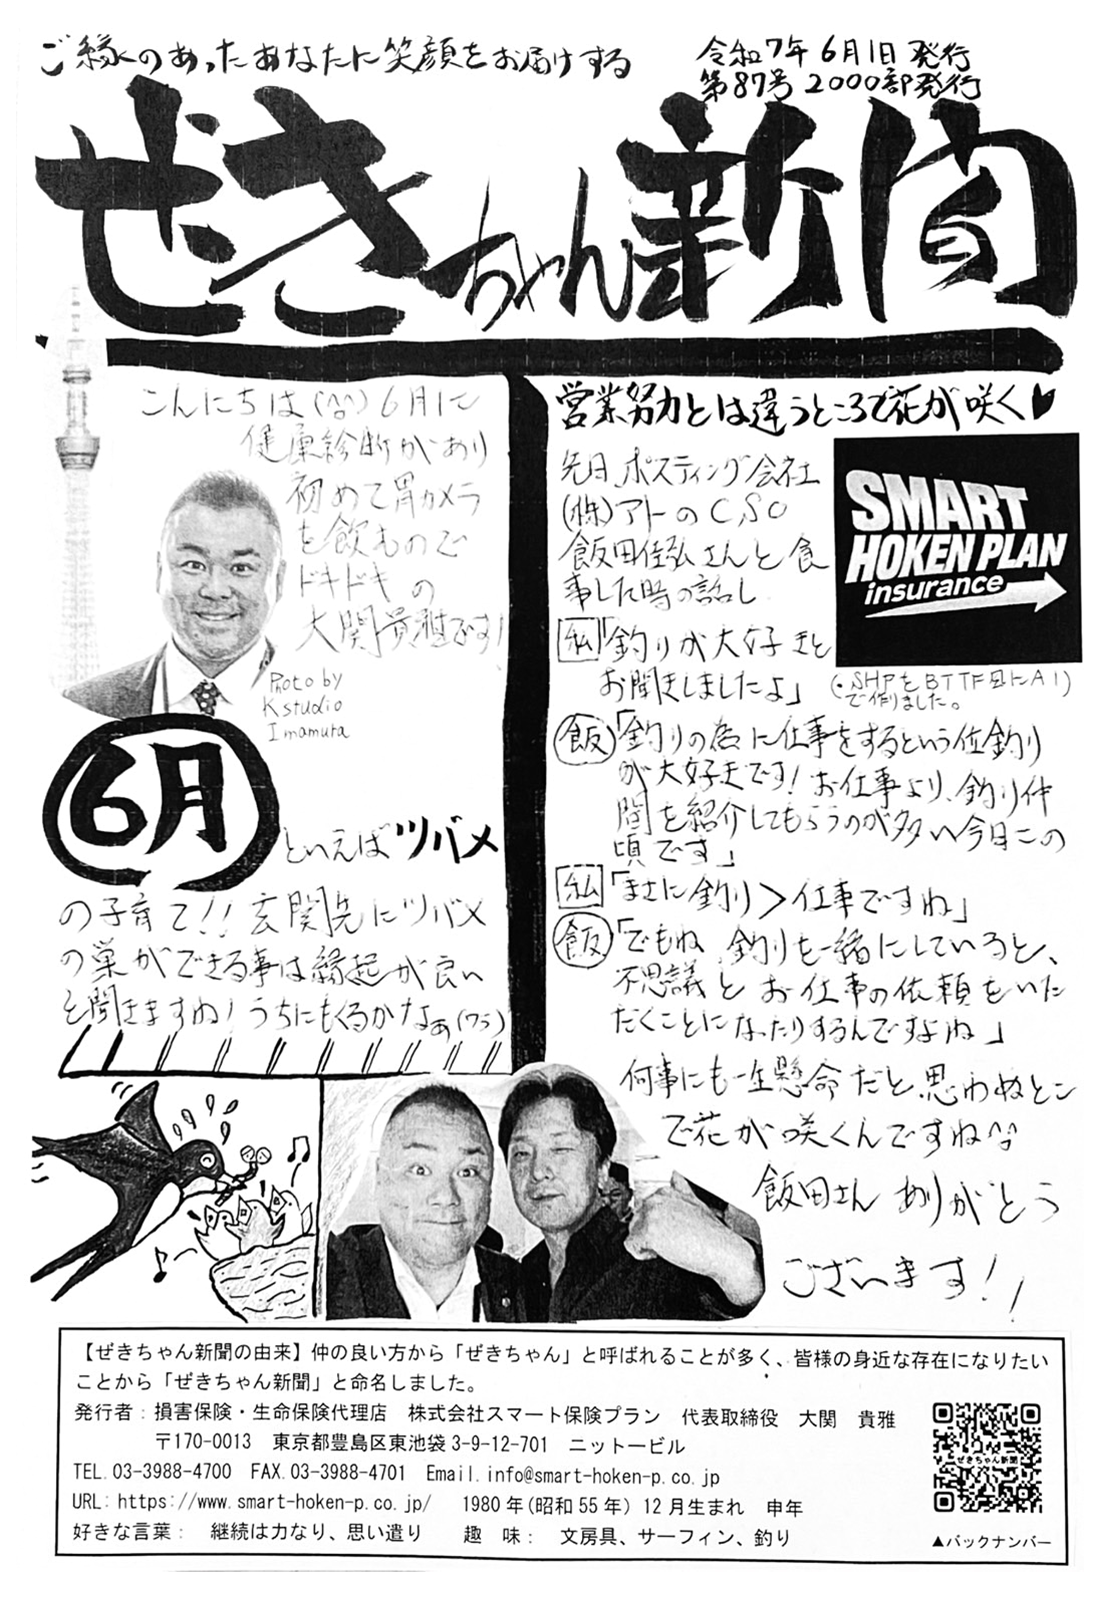 ご縁のあったあなたに笑顔をお届けする
令和7年6月1日発行
第87号 2000部発行
ぜきちゃん新聞
こんにちは(^^)6月に
健康診断があり
初めて胃カメラ
を飲むので
ドキドキの
大関貴雅です!
Photo by
K studio
Imamura
6月
といえばツバメ
の子育て!!玄関先にツバメ
の巣ができる事は縁起が良い
と聞きますね!うちにもくるかなぁ(ワラ)
営業努力とは違うところで花が咲く♥
先日、ポスティング会社
(株)アトのCSO
飯田佳弘さんと食
事した時の話し
SMART
HOKEN PLAN
insurance
(・SHPをBTTF風にAI)
で作りました。
私「釣りが大好きと
お聞きしましたよ」
飯「釣りの為に仕事をするという位釣り
が大好きです!お仕事より、釣り仲
間を紹介してもらうのが多い今日この
頃です」
私「まさに釣り>仕事ですね」
飯「でもね、釣りを一緒にしていると、
不思議とお仕事の依頼をいた
だくことになったりするんですよね」
何事にも一生懸命だと、思わぬとこ
で花が咲くんですね^^
飯田さんありがとう
ございます!!
【ぜきちゃん新聞の由来】仲の良い方から「ぜきちゃん」と呼ばれることが多く、皆様の身近な存在になりたい
ことから「ぜきちゃん新聞」と命名しました。
発行者:損害保険・生命保険代理店 株式会社スマート保険プラン 代表取締役 大関 貴雅
〒170-0013 東京都豊島区東池袋3-9-12-701 ニットービル
TEL.03-3988-4700 FAX.03-3988-4701 Email.info@smart-hoken-p.co.jp
URL:https://www.smart-hoken-p.co.jp/ 1980年(昭和55年)12月生まれ 申年
好きな言葉: 継続は力なり、思い遣り 趣 味: 文房具、サーフィン、釣り
ぜきちゃん新聞
▲バックナンバー